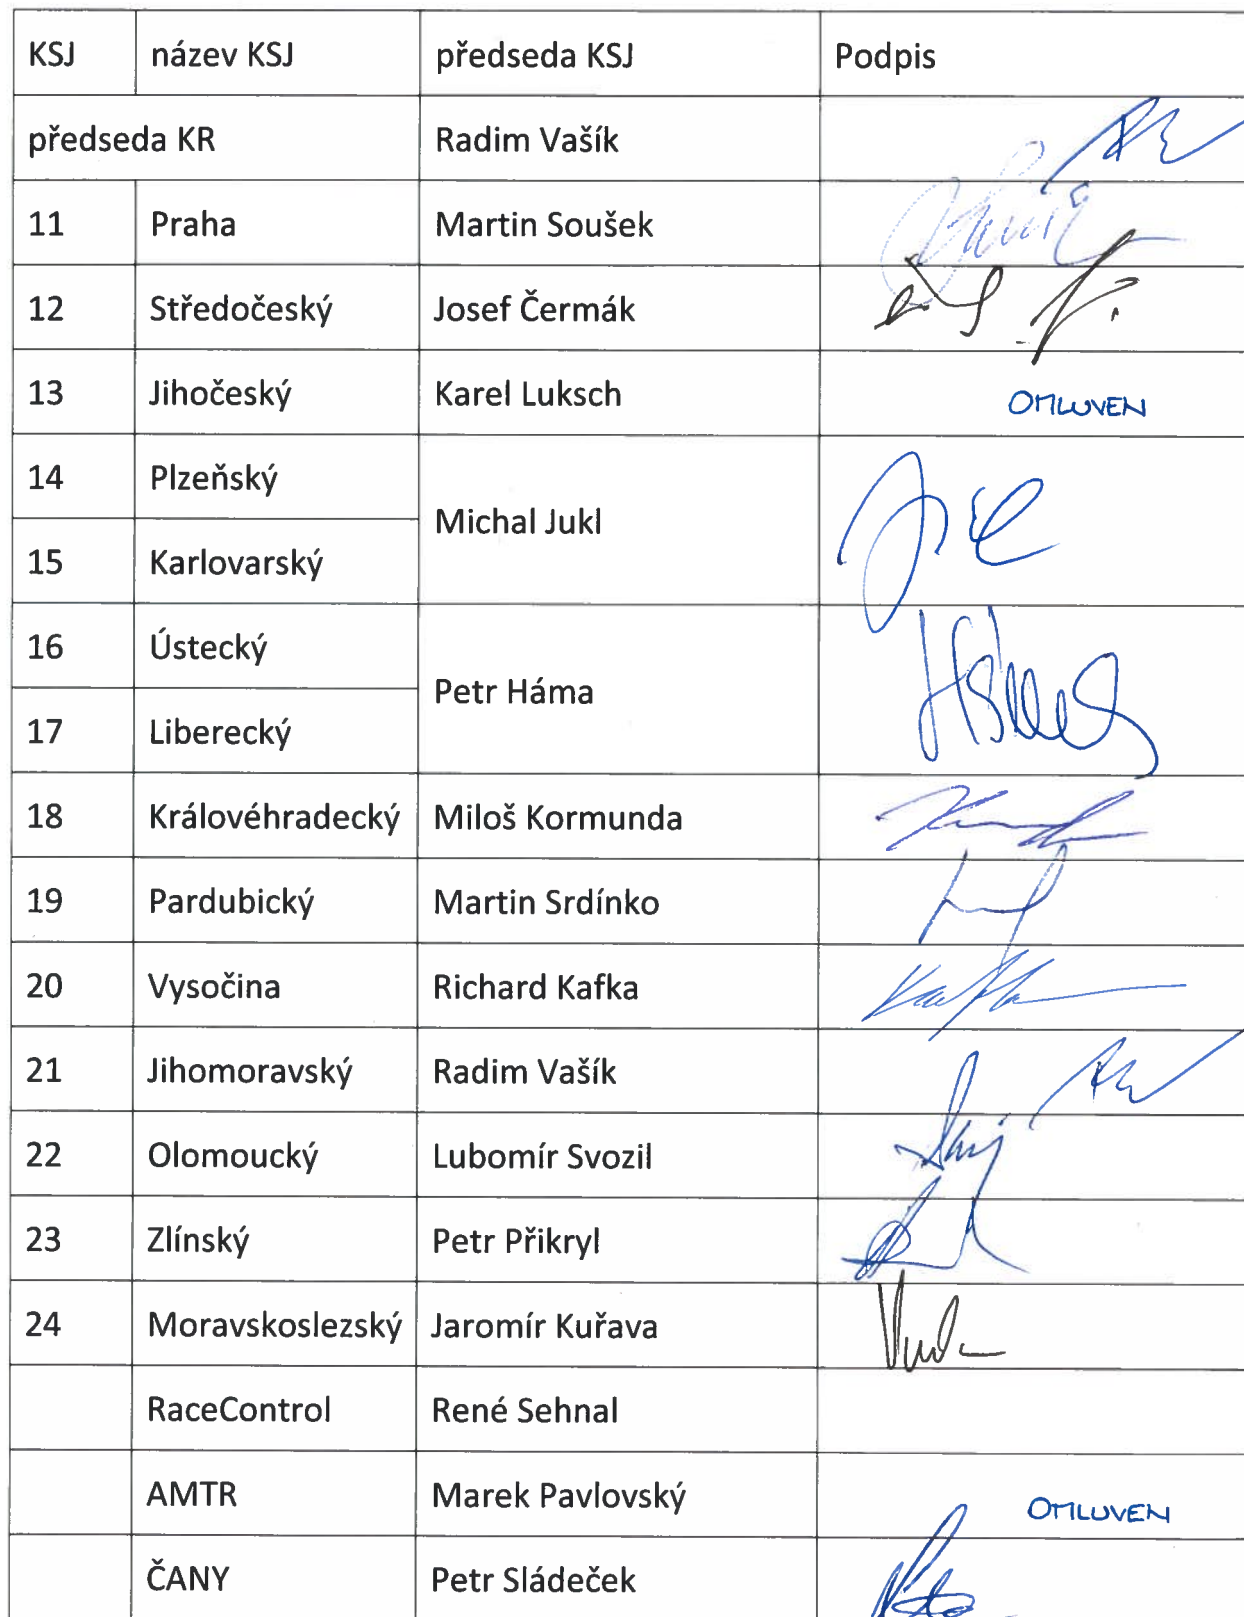 KSJ název KSJ předseda KSJ Podpis
předseda KR Radim Vašík
11 Praha Martin Soušek
12 Středočeský Josef Čermák
13 Jihočeský Karel Luksch OMLUVEN
14 Plzeňský
Michal Jukl
15 Karlovarský
16 Ústecký
Petr Háma
17 Liberecký
18 Královéhradecký Miloš Kormunda
19 Pardubický Martin Srdínko
20 Vysočina Richard Kafka
21 Jihomoravský Radim Vašík
22 Olomoucký Lubomír Svozil
23 Zlínský Petr Přikryl
24 Moravskoslezský Jaromír Kuřava
RaceControl René Sehnal
AMTR Marek Pavlovský OMLUVEN
ČANY Petr Sládeček